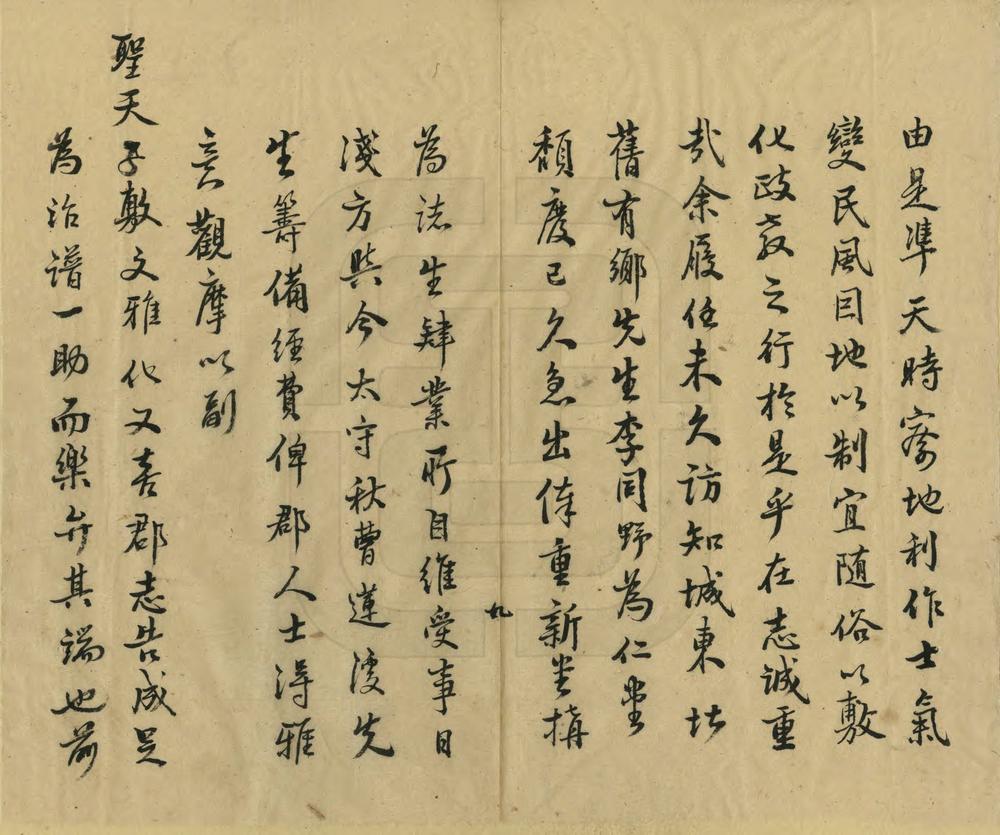 由是準天時察地利作士氣
變民風因地以制宜隨俗以敷
化政教之行於是乎在志誠重
哉余履任未久訪知城東北
舊有鄉先生李同野為仁堂
頹廢已久急出俸重新堂構
九
為諸生肄業所自維受事日
淺方與今太守秋曹蓮溇先
生籌備經費俾郡人士得雅
言觀摩以副
聖天子敷文雅化又喜郡志告成足
為治譜一助而樂弁其端也前